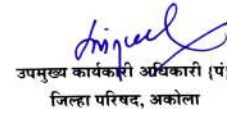 उपमुख्य कार्यकारी अधिकारी (पं)
जिल्हा परिषद, अकोला